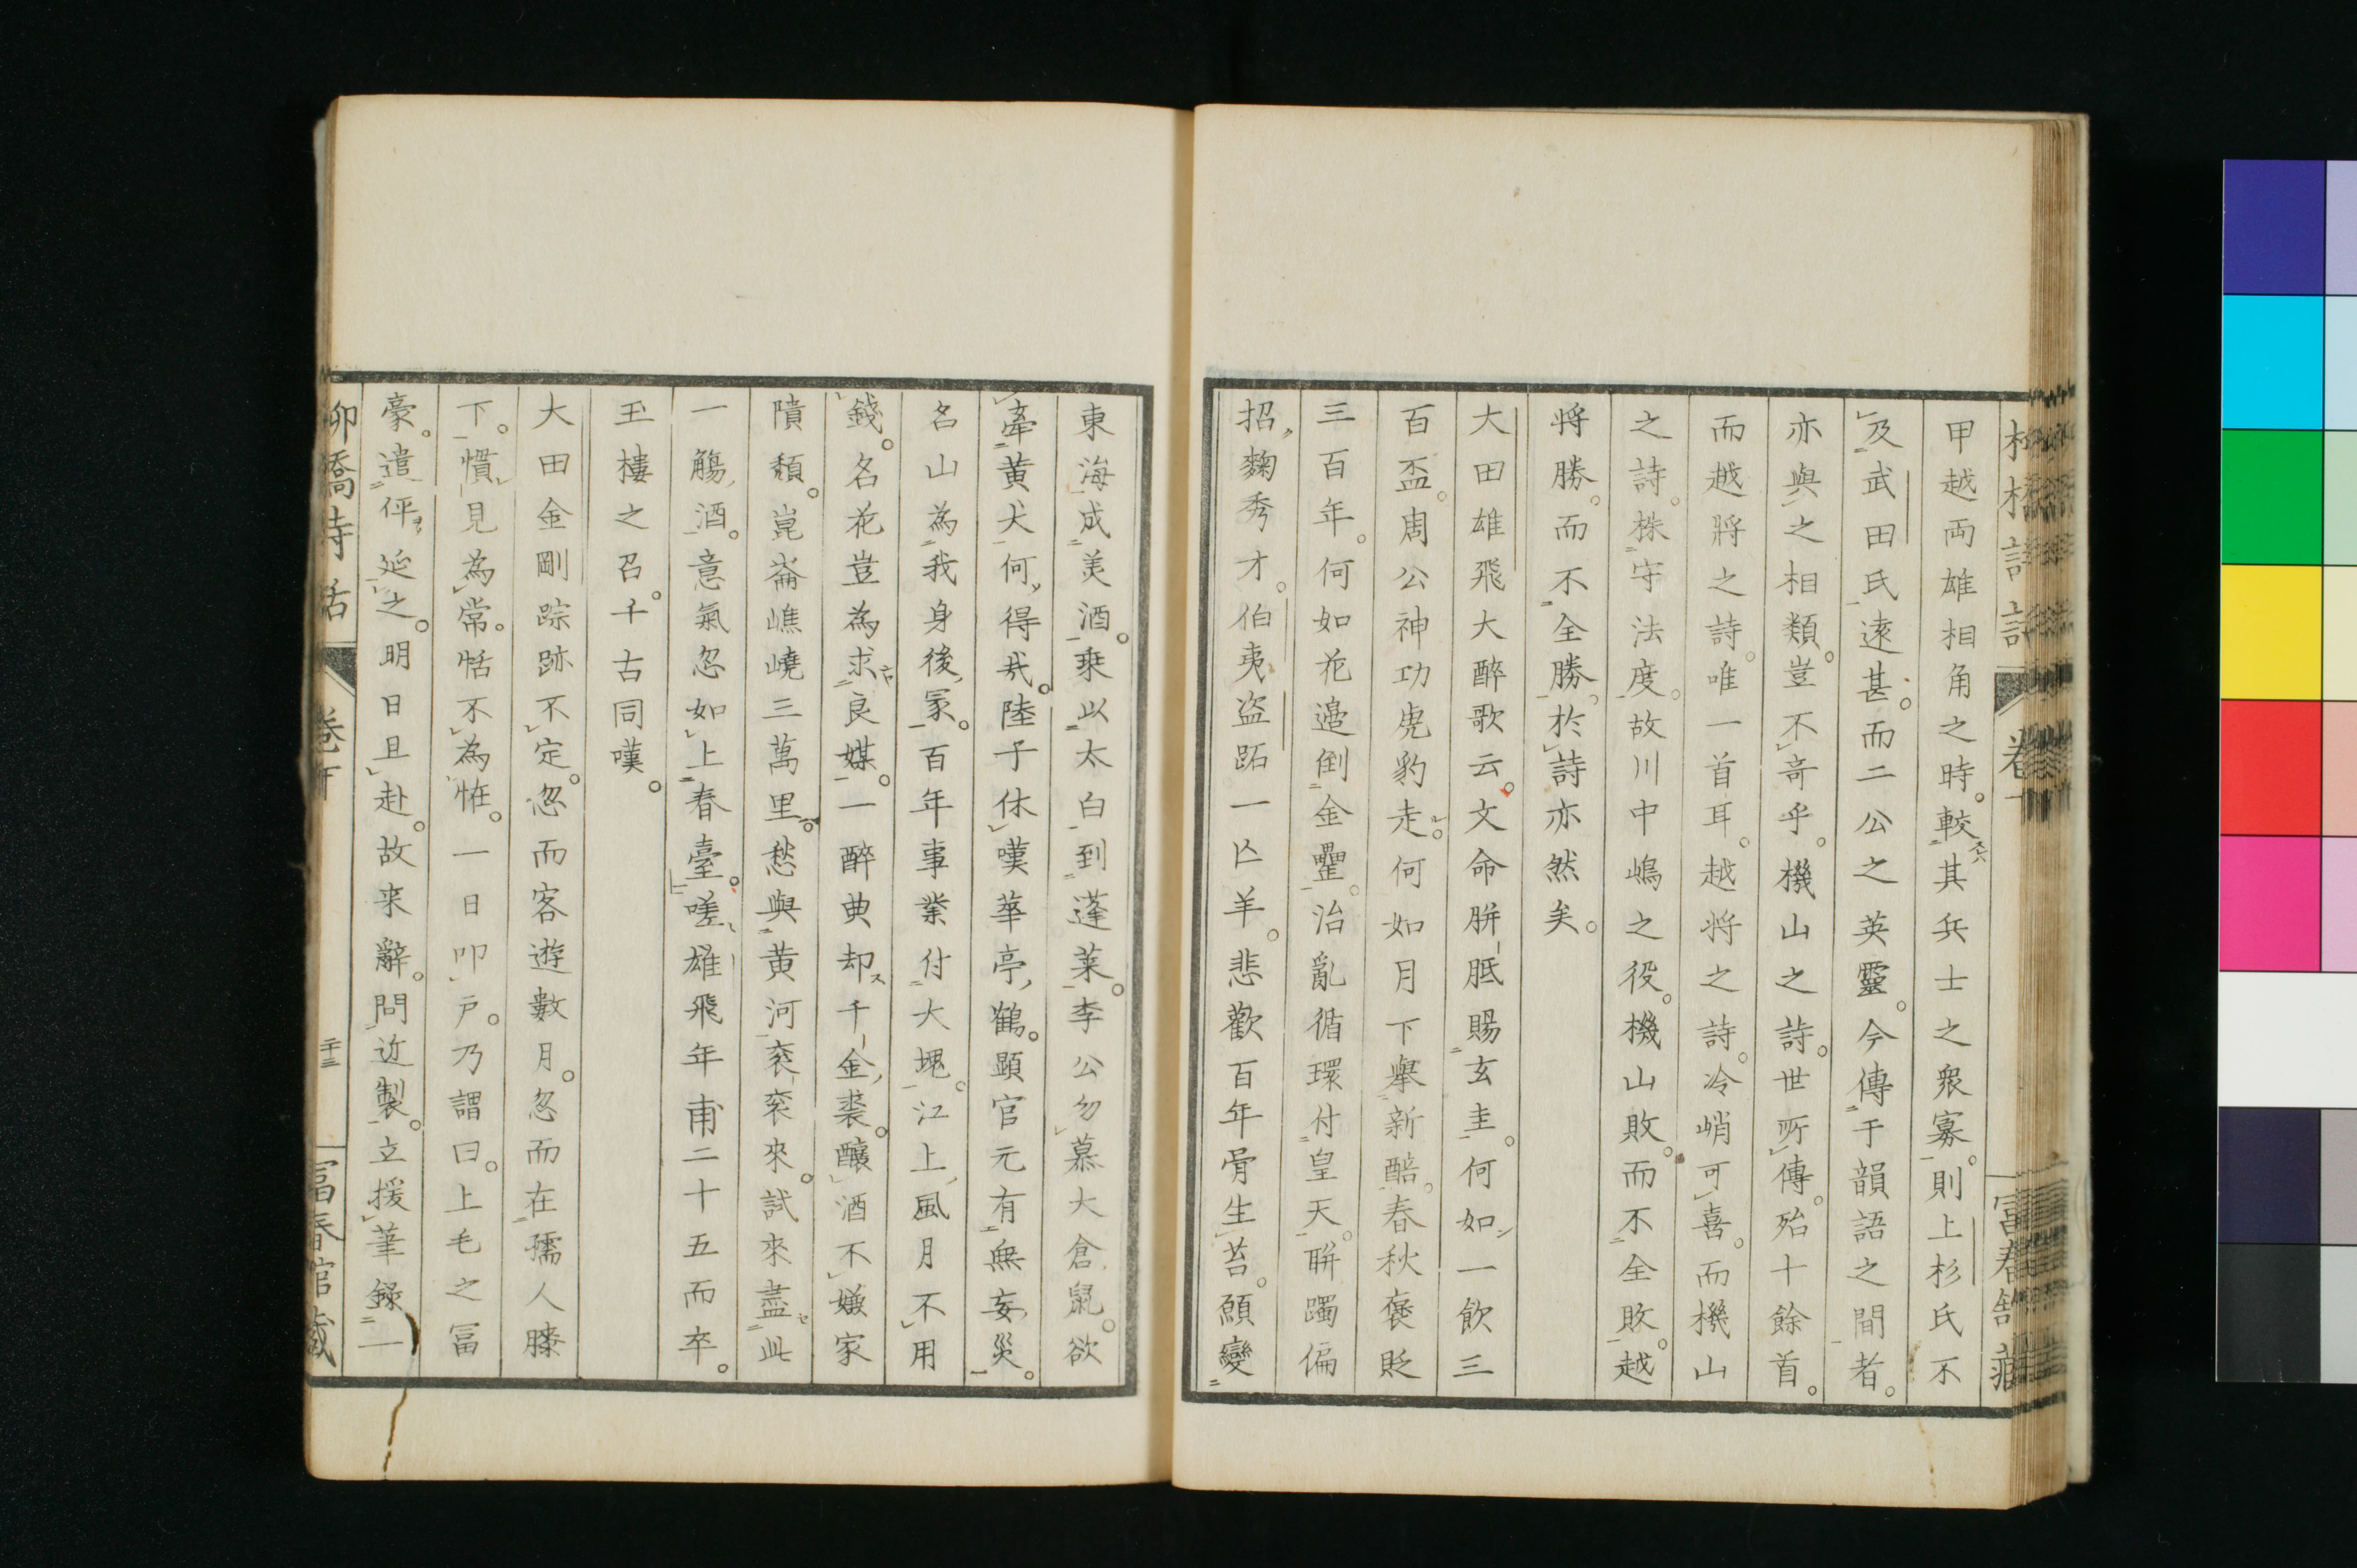 甲越両雄相角之時。較其兵士之衆寡。則上杉氏不
及武田氏遠甚。而二公之英靈。今傳于韻語之間者。
亦與之相類。豈不奇乎。機山之詩。世所傳。殆十餘首。
而越將之詩。唯一首耳。越将之詩。冷峭可喜。而機山
之詩。株守法度。故川中嶋之役。機山敗。而不全敗。越
将勝。而不全勝。於詩亦然矣。
大田雄飛大醉歌云。文命胼胝賜玄圭。何如一飲三
百盃。周公神功虎豹走。何如月下擧新醅。春秋褒貶
三百年。何如花邉倒金罍。治亂循環付皇天。駢躅偏
招麹秀才。伯夷盗跖一亾羊。悲歡百年骨生苔。願變
東海成美酒。乗以太白到蓬莱。李公勿慕大倉鼠。欲
牽黄犬何得哉。陸子休嘆華亭鶴。顕官元有無妄災。
名山為我身後冢。百年事業付大塊。江上風月不用
錢。名花豈為求良媒。一醉典却千金裘。釀酒不嫌家
隤頽。崑崙嶕嶢三萬里。愁與黄河衮衮來。試來盡此
一觴酒。意氣忽如上春臺。嗟雄飛年甫二十五而卒。
玉樓之召。千古同嘆。
大田金剛踪跡不定。忽而客遊數月。忽而在孺人膝
下。慣見為常。恬不為恠。一日叩戸。乃謂曰。上毛之冨
豪。遣伻延之。明日且赴。故来辭。問近製。立援筆録一
柳橋詩話
巻下
二十三
冨春館蔵